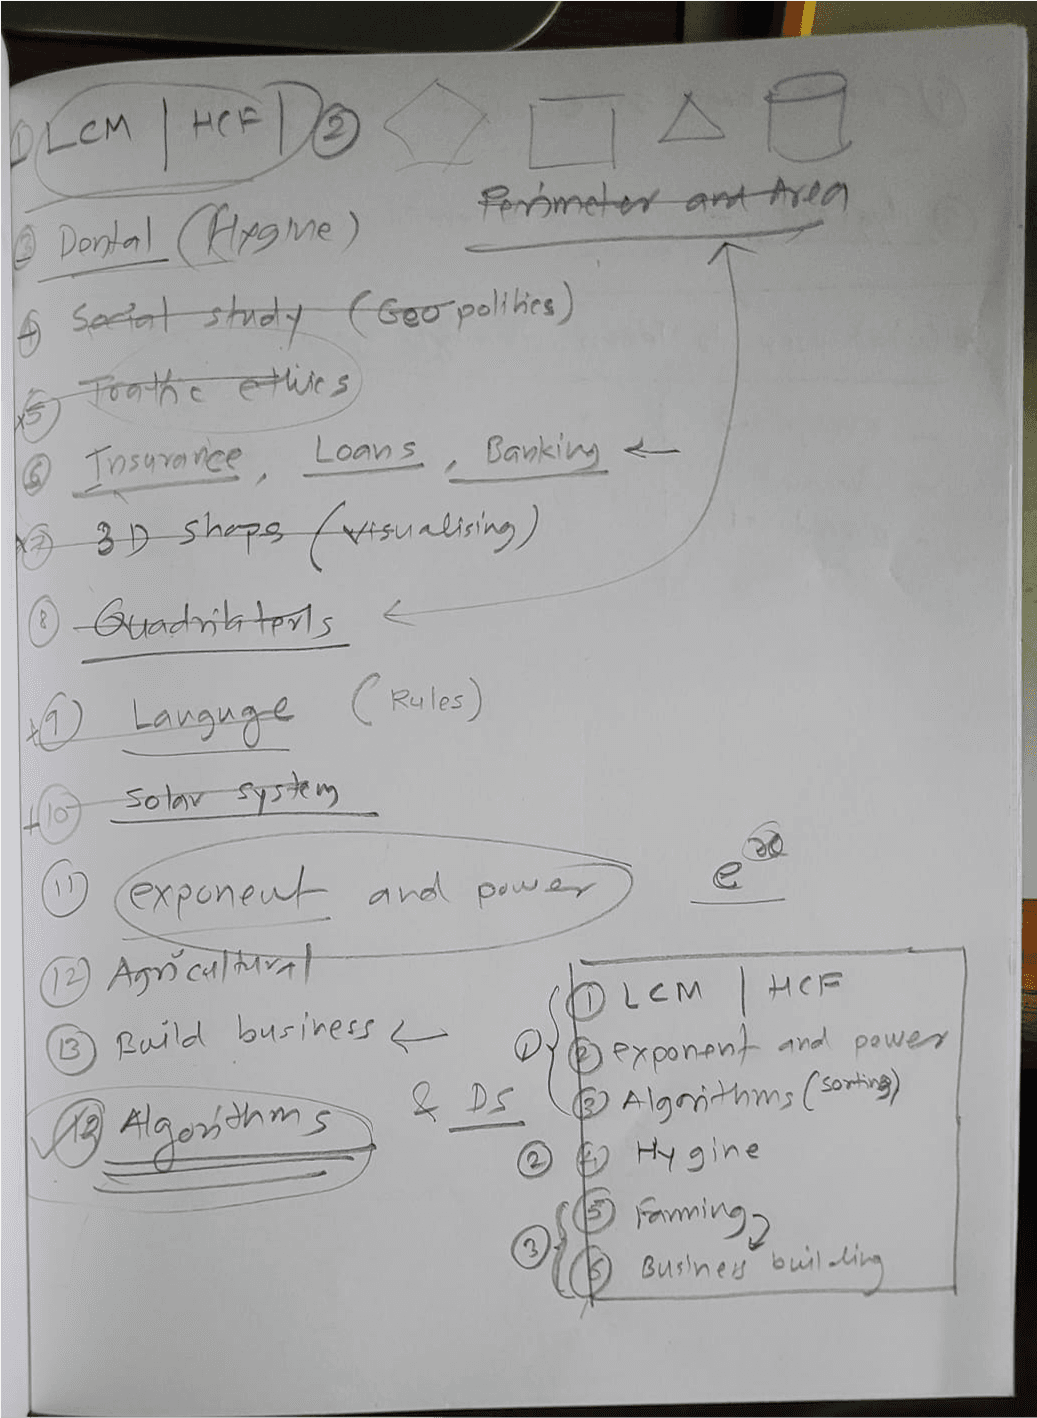 ① LCM | HCF | ②
Perimeter and Area
③ Dental (Hygine)
④ Social study (Geo politics)
⑤ Traffic ethics
⑥ Insurance, Loans, Banking ←
⑦ 3D shaps (visualising)
⑧ Quadrilaterls
⑨ Languge (Rules)
⑩ Solar system
⑪ exponent and power
e
⑫ Agricultural
⑬ Build business ←
Algorithms & DS
① LCM | HCF
① ② exponent and power
③ Algorithms (sorting)
② ④ Hygine
⑤ Farming
③ ⑥ Business building